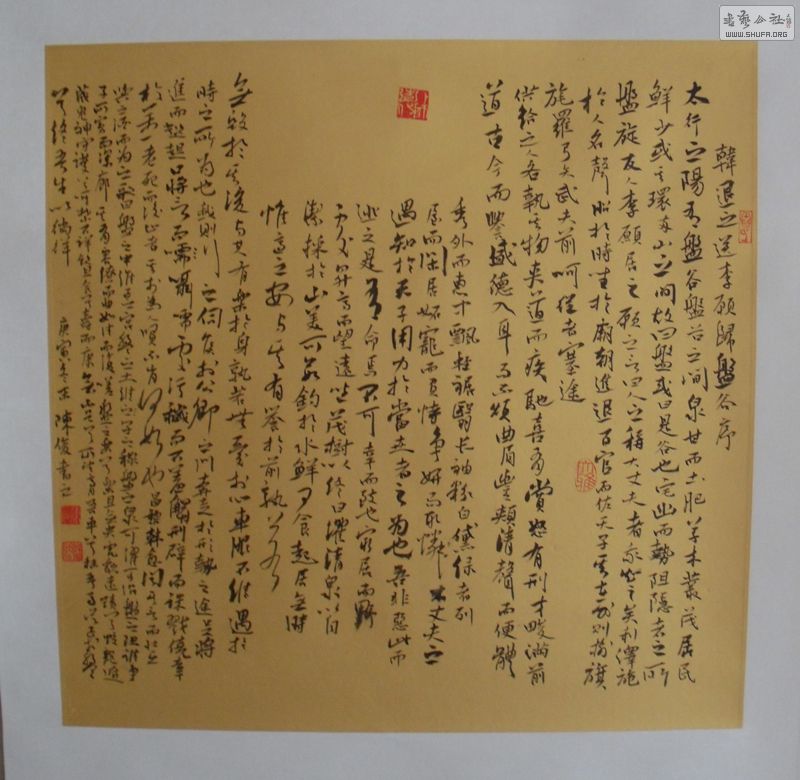 韓退之送李願歸盤谷序
太行之陽有盤谷盤谷之間泉甘而土肥草木叢茂居民
鮮少或曰環兩山之間故曰盤或曰是谷也宅幽而勢阻隱者之所
盤旋友人李願居之願之言曰人之稱大丈夫者我知之矣利澤施
於人名聲昭於時坐於廟朝進退百官而佐天子出令其在外則樹旗
旄羅弓矢武夫前呵從者塞途
供給之人各執其物夾道而疾馳喜有賞怒有刑才畯滿前
道古今而譽盛德入耳而不煩曲眉豐頰清聲而便體
秀外而惠中飄輕裾翳長袖粉白黛綠者列
屋而閒居妬寵而負恃爭妍而取憐大丈夫之
遇知於天子用力於當世者之為也吾非惡此而
逃之是有命焉不可幸而致也窮居而野
處升高而望遠坐茂樹以終日濯清泉以自
潔採於山美可茹釣於水鮮可食起居無時
惟適之安與其有譽於前孰若
無毀於其後與其有樂於身孰若無憂於心車服不維遇於
時之所為也我則行之伺候於公卿之門奔走於形勢之途足將
進而趑趄口將言而囁嚅處污穢而不羞觸刑辟而誅戮僥幸
於萬一老死而後止者其於為人賢不肖何如也昌黎韓愈聞其言而壯之
與之酒而為之歌曰盤之中維子之宮盤之土維子之稼盤之泉可濯可沿盤之阻誰爭
子所窈而深廓其有容繚而曲如往而復嗟盤之樂兮樂且無央虎豹遠跡兮蛟龍遁
藏鬼神守護兮呵禁不祥飲且食兮壽而康無不足兮奚所望膏吾車兮秣吾馬從子於盤
兮終吾生以徜徉
庚寅冬至陳俊書之
書藝公社
WWW.SHUFA.ORG